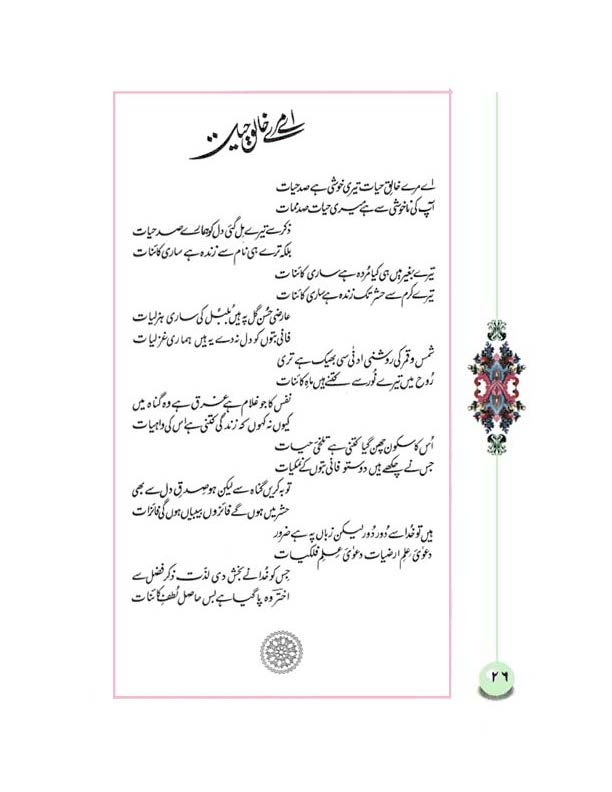 اے مرے خالقِ حیات
اے مرے خالقِ حیات تیری خوشی ہے صد حیات
آپ کی ناخوشی سے ہے میری حیات صد ممات
ذکر سے تیرے مل گئی دل کو ہمارے صد حیات
بلکہ ترے ہی نام سے زندہ ہے ساری کائنات
تیرے بغیر میں ہی کیا مُردہ ہے ساری کائنات
تیرے کرم سے حشر تک زندہ ہے ساری کائنات
عارضی حُسنِ گل پہ ہیں بُلبُل کی ساری ہزلیات
فانی بتوں کو دل نہ دے یہ ہیں ہماری غزلیات
شمس و قمر کی روشنی ادنیٰ سی بھیک ہے تری
رُوح میں تیرے نُور سے کتنے ہیں ماہِ کائنات
نفس کا جو غلام ہے غرق ہے وہ گناہ میں
کیوں نہ کہوں کہ زندگی کتنی ہے اس کی واہیات
اُس کا سکون چھن گیا کتنی ہے تلخیٔ حیات
جس نے چکھے ہیں دوستو فانی بتوں کے نمکیات
توبہ کریں گناہ سے لیکن ہو صِدقِ دل سے بھی
حشر میں ہوں گے فائزوں بیبیاں ہوں گی فائزات
ہیں تو خُدا سے دُور دُور لیکن زباں پہ ہے ضرور
دعویٔ علمِ ارضیات دعویٔ علمِ فلکیات
جس کو خُدا نے بخش دی لذّتِ ذکر فضل سے
اخترؔ وہ پا گیا ہے بس حاصلِ لُطفِ کائنات
۲۶